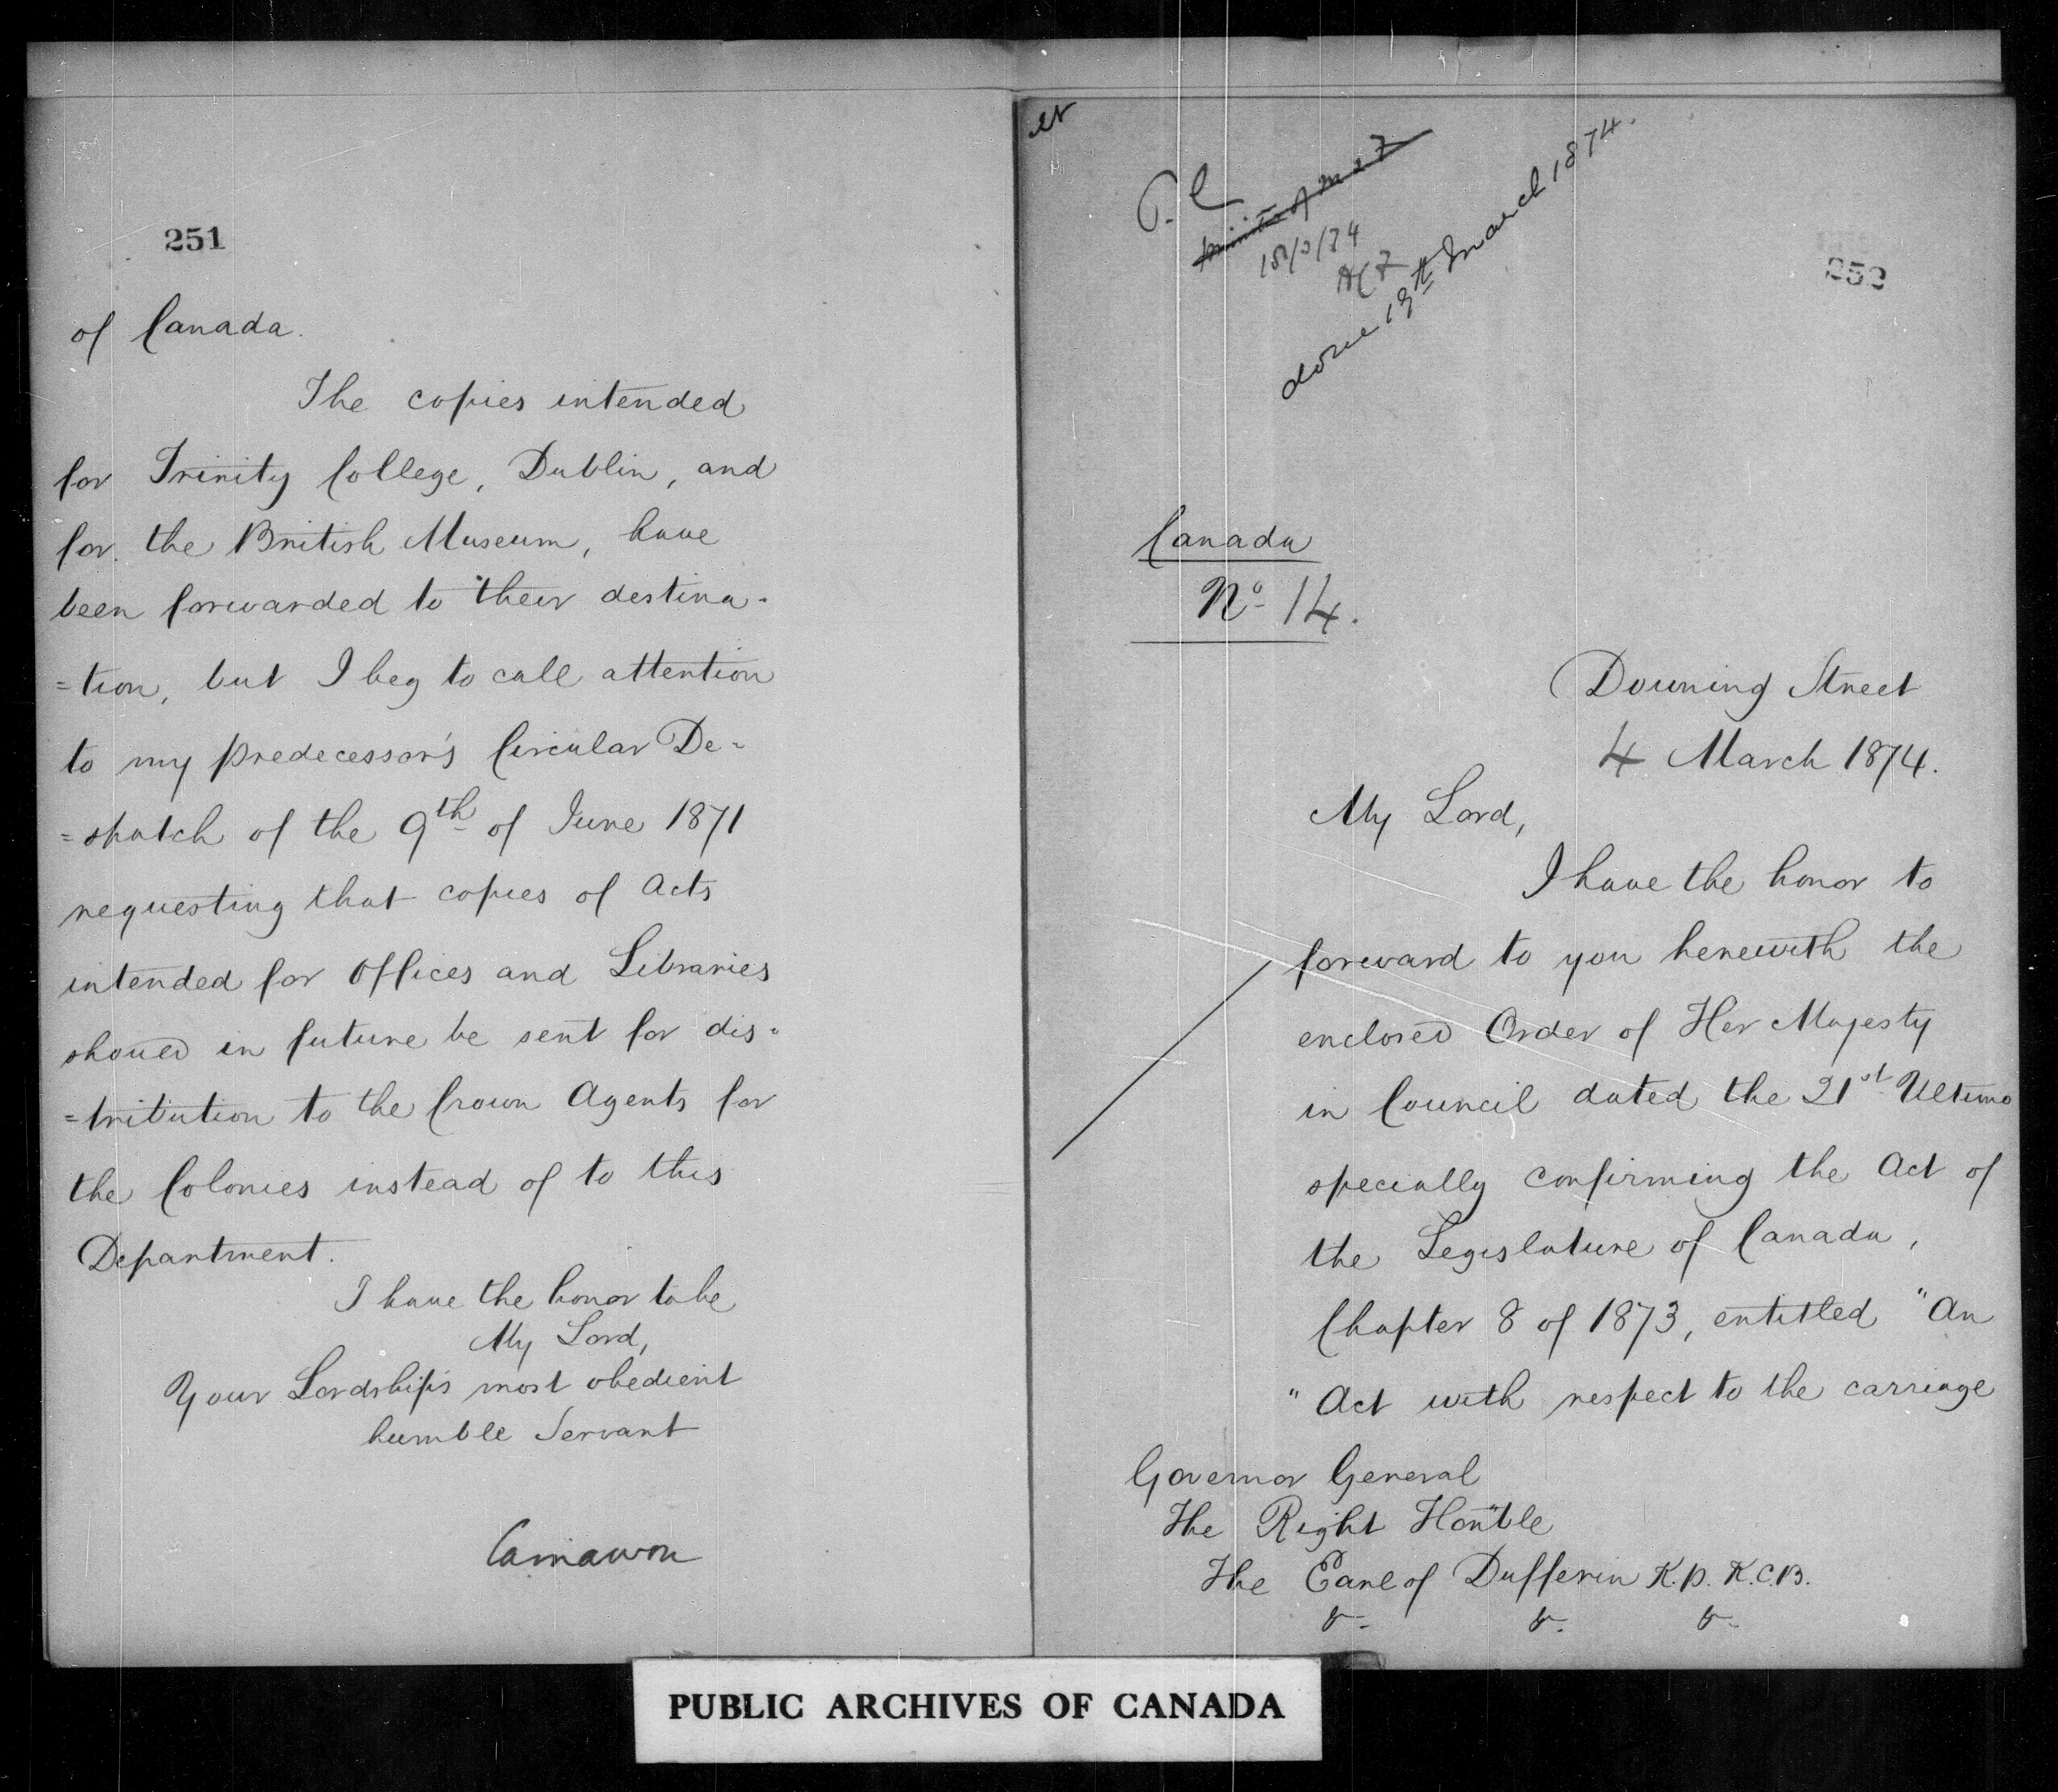 251
of Canada.
The copies intended
for Trinity College, Dublin, and
for the British Museum, have
been forwarded to their destina-
=tion, but I beg to call attention
to my predecessor's Circular De-
=spatch of the 9th of June 1871
requesting that copies of Acts
intended for Offices and Libraries
should in future be sent for dis-
=tribution to the Crown Agents for
the Colonies instead of to this
Department.
I have the honor to be
My Lord,
Your Lordship's most obedient
humble Servant
Carnarvon
P.C
18/3/74
done 19th March 1874.
252
Canada
No 14.
Downing Street
4 March 1874.
My Lord,
I have the honor to
forward to you herewith the
enclosed Order of Her Majesty
in Council dated the 21st Ultimo
specially confirming the Act of
the Legislature of Canada,
Chapter 8 of 1873, entitled "An
"Act with respect to the carriage
Governor General
The Right Honble
The Earl of Dufferin K.P. K.C.B.
&- &- &-
PUBLIC ARCHIVES OF CANADA